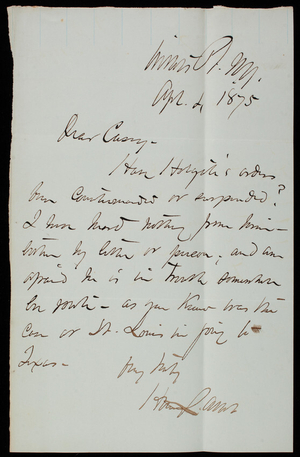 Willets Pt. N.Y.
Apl. 4, 1875
Dear Casey-
Have Holgate's orders
been countermanded or suspended?
I have heard nothing from him -
either by letter or person, and am
afraid he is in trouble somewhere
En route - as you know was the
case at St. Louis in going to
Texas -
Very truly
Henry L. Abbot